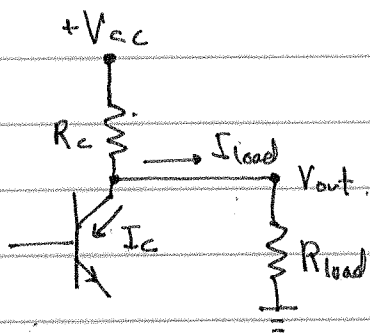 +Vcc
Rc
Iload
Vout.
Ic
Rload